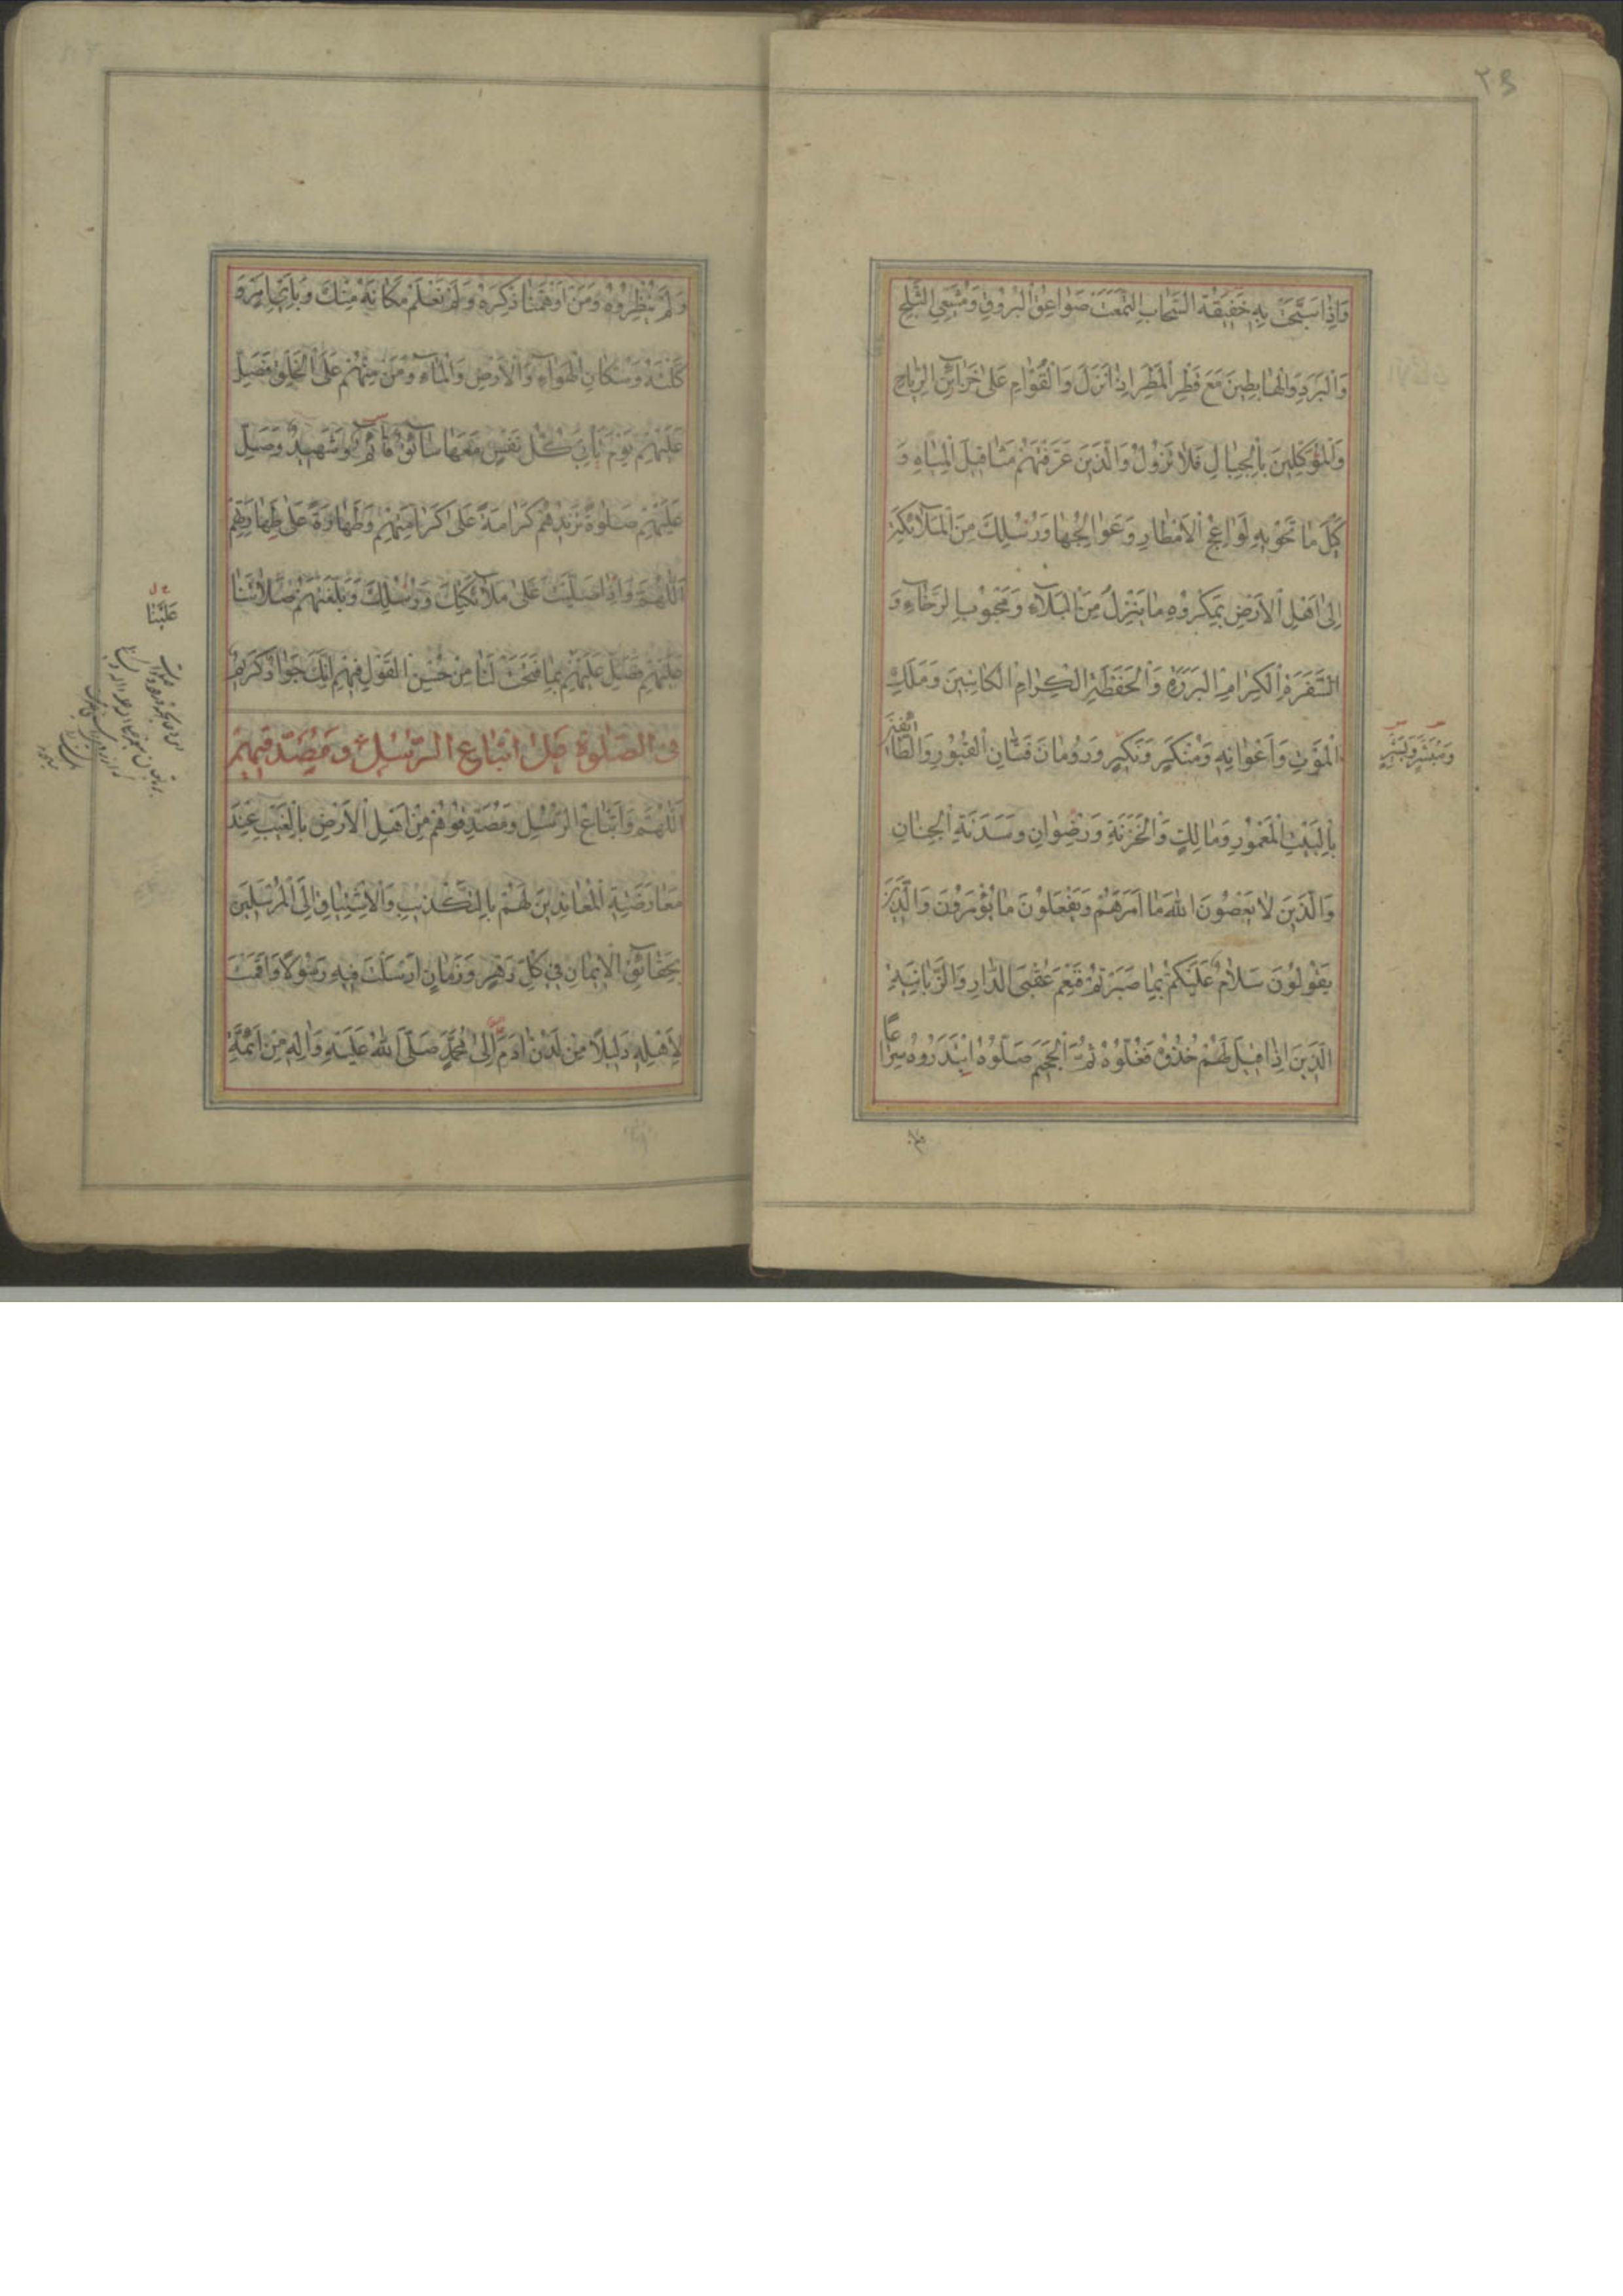 وَاِذَا سَبَّحَتْ بِهِ حَفِيفَةُ السَّحَابِ الْتَمَعَتْ صَوَاعِقُ الْبُرُوقِ وَمُشَيِّعِي الثَّلْجِ
وَالْبَرَدِ وَالْهَابِطِينَ مَعَ قَطْرِ الْمَطَرِ اِذَا نَزَلَ وَالْقُوَّامِ عَلَى خَزَائِنِ الرِّيَاحِ
وَالْمُوَكَّلِينَ بِالْجِبَالِ فَلَا تَزُولُ وَالَّذِينَ عَرَّفْتَهُمْ مَثَاقِيلَ الْمِيَاهِ وَ
كَيْلَ مَا تَحْوِيهِ لَوَاعِجُ الْاَمْطَارِ وَعَوَالِجُهَا وَرُسُلِكَ مِنَ الْمَلَائِكَةِ
اِلَى اَهْلِ الْاَرْضِ بِمَكْرُوهِ مَا يَنْزِلُ مِنَ الْبَلَاءِ وَمَحْبُوبِ الرَّخَاءِ وَ
السَّفَرَةِ الْكِرَامِ الْبَرَرَةِ وَالْحَفَظَةِ الْكِرَامِ الْكَاتِبِينَ وَمَلَكِ
الْمَوْتِ وَاَعْوَانِهِ وَمُنْكَرٍ وَنَكِيرٍ وَرُومَانَ فَتَّانِ الْقُبُورِ وَالطَّائِفِينَ
وَمُبَشِّرٍ وَبَشِيرٍ
بِالْبَيْتِ الْمَعْمُورِ وَمَالِكٍ وَالْخَزَنَةِ وَرِضْوَانِ وَسَدَنَةِ الْجِنَانِ
وَالَّذِينَ لَا يَعْصُونَ اللهَ مَا اَمَرَهُمْ وَيَفْعَلُونَ مَا يُؤْمَرُونَ وَالَّذِينَ
يَقُولُونَ سَلَامٌ عَلَيْكُمْ بِمَا صَبَرْتُمْ فَنِعْمَ عُقْبَى الدَّارِ وَالزَّبَانِيَةِ
الَّذِينَ اِذَا قِيلَ لَهُمْ خُذُوهُ فَغُلُّوهُ ثُمَّ الْجَحِيمَ صَلُّوهُ ابْتَدَرُوهُ سِرَاعًا
وَلَمْ يُنْظِرُوهُ وَمَنْ اَوْهَمْنَا ذِكْرَهُ وَلَمْ نَعْلَمْ مَكَانَهُ مِنْكَ وَبِاَيِّ اَمْرٍ وَ
كَّلْتَهُ وَسُكَّانِ الْهَوَاءِ وَالْاَرْضِ وَالْمَاءِ وَمَنْ مِنْهُمْ عَلَى الْخَلْقِ فَصَلِّ
عَلَيْهِمْ يَوْمَ تَأْتِي كُلُّ نَفْسٍ مَعَهَا سَائِقٌ وَشَهِيدٌ وَصَلِّ
عَلَيْهِمْ صَلٰوةً تَزِيدُهُمْ كَرَامَةً عَلَى كَرَامَتِهِمْ وَطَهَارَةً عَلَى طَهَارَتِهِمْ
اَللّٰهُمَّ وَاِذَا صَلَّيْتَ عَلَى مَلَائِكَتِكَ وَرُسُلِكَ وَبَلَّغْتَهُمْ صَلَاتَنَا
عَلَيْنَا
عَلَيْهِمْ فَصَلِّ عَلَيْهِمْ بِمَا فَتَحْتَ لَنَا مِنْ حُسْنِ الْقَوْلِ فِيهِمْ اِنَّكَ جَوَادٌ كَرِيمٌ
فى الصلوة على اتباع الرسل و مصدقيهم
اَللّٰهُمَّ وَاَتْبَاعُ الرُّسُلِ وَمُصَدِّقُوهُمْ مِنْ اَهْلِ الْاَرْضِ بِالْغَيْبِ عِنْدَ
مُعَارَضَةِ الْمُعَانِدِينَ لَهُمْ بِالتَّكْذِيبِ وَالْاِشْتِيَاقِ اِلَى الْمُرْسَلِينَ
بِحَقَائِقِ الْاِيمَانِ فِي كُلِّ دَهْرٍ وَزَمَانٍ اَرْسَلْتَ فِيهِ رَسُولًا وَاَقَمْتَ
لِاَهْلِهِ دَلِيلًا مِنْ لَدُنْ اٰدَمَ اِلَى مُحَمَّدٍ صَلَّى اللهُ عَلَيْهِ وَاٰلِهِ مِنْ اَئِمَّةِ